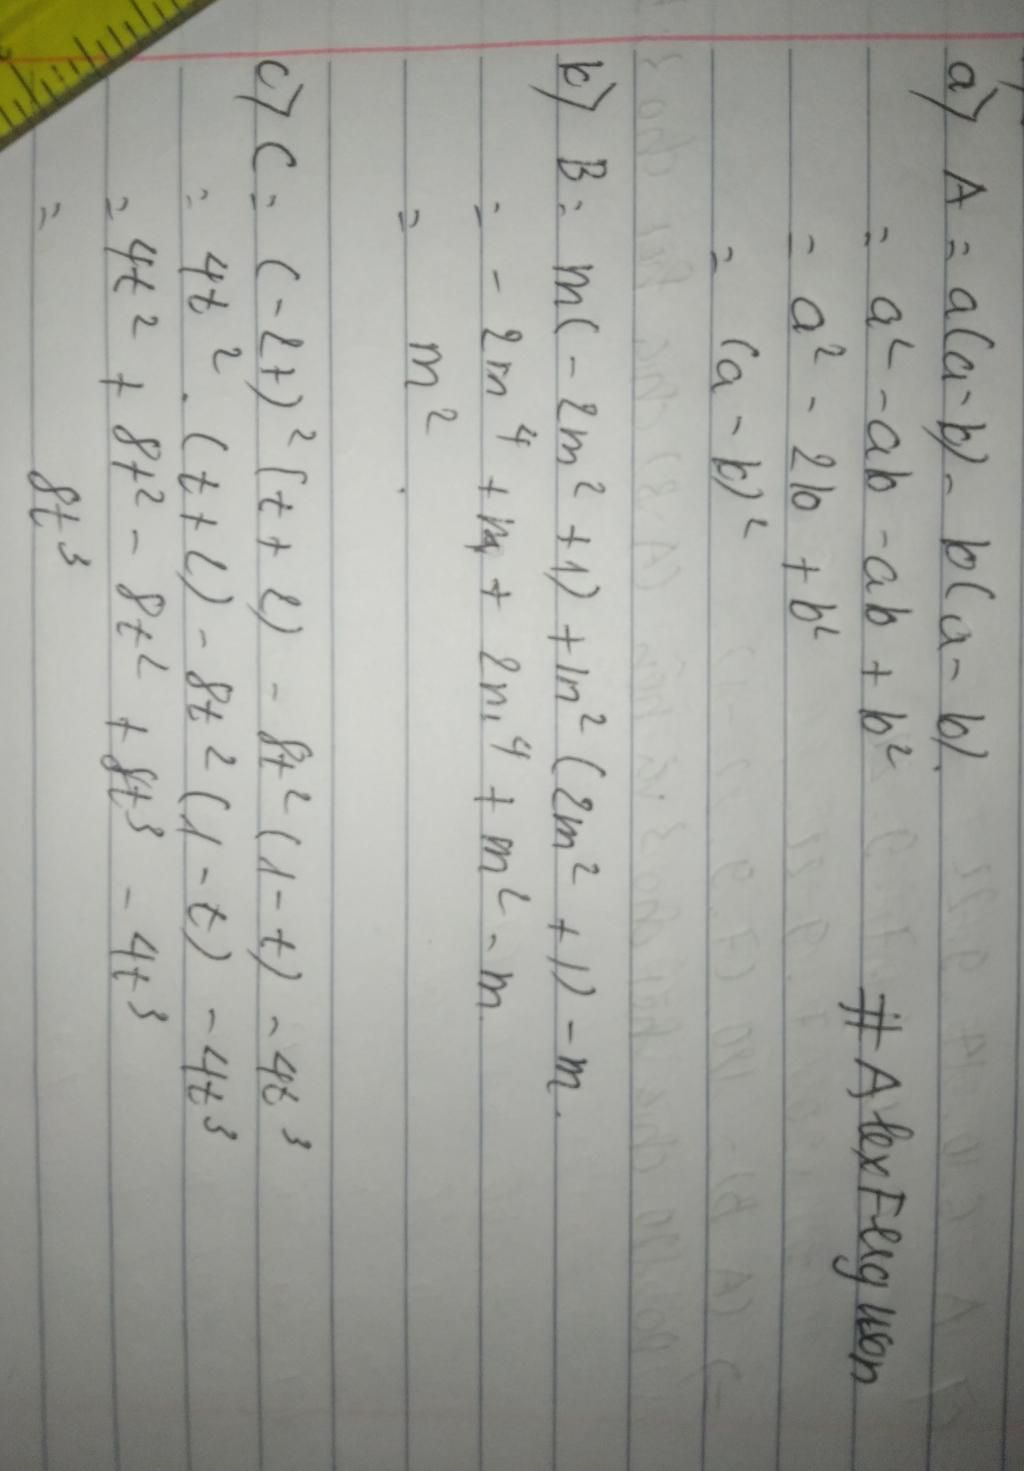 a) A = a(a-b) - b(a-b).
= a² - ab - ab + b²
= a² - 2b + b²
= (a-b)²
#AlexFerguson
b) B = m(-2m²+1) + m²(2m²+1) - m.
= -2m⁴ + m + 2m⁴ + m² - m
= m²
c) C = (-2t)²(t+2) - 8t²(1-t) - 4t³
= 4t².(t+2) - 8t²(1-t) - 4t³
= 4t² + 8t² - 8t² + 8t³ - 4t³
= 8t³